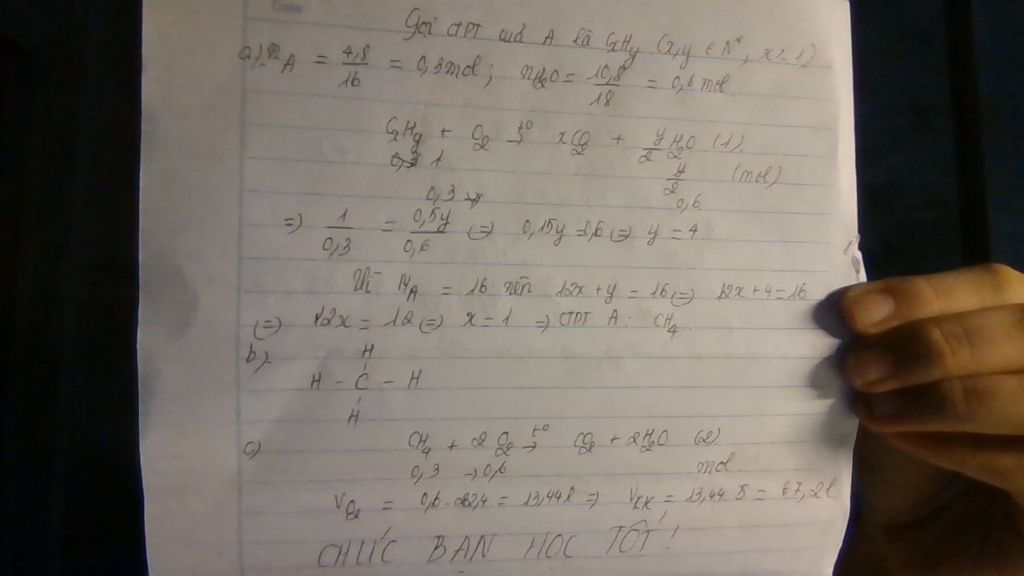 Gọi CTPT của A là CxHy (x,y ∈ N*, x = 1)
a) nA = 4,8/16 = 0,3 mol; nH2O = 10,8/18 = 0,6 mol
CxHy + O2 →t° xCO2 + y/2 H2O (1)
0,3 1 y/2 (mol)
0,3 → 0,6
=) 1/0,3 = 0,5y/0,6 (=) 0,15y = 0,6 (=) y = 4
Vì MA = 16 nên 12x + y = 16 (=) 12x + 4 = 16
(=) 12x = 12 (=) x = 1 => CTPT A: CH4
b)
H
H - C - H
H
c) CH4 + 2O2 →t° CO2 + 2H2O (2)
0,3 → 0,6 mol
VO2 = 0,6 . 22,4 = 13,44 l => VKK = 13,44 . 5 = 67,2 l
CHÚC BẠN HỌC TỐT!